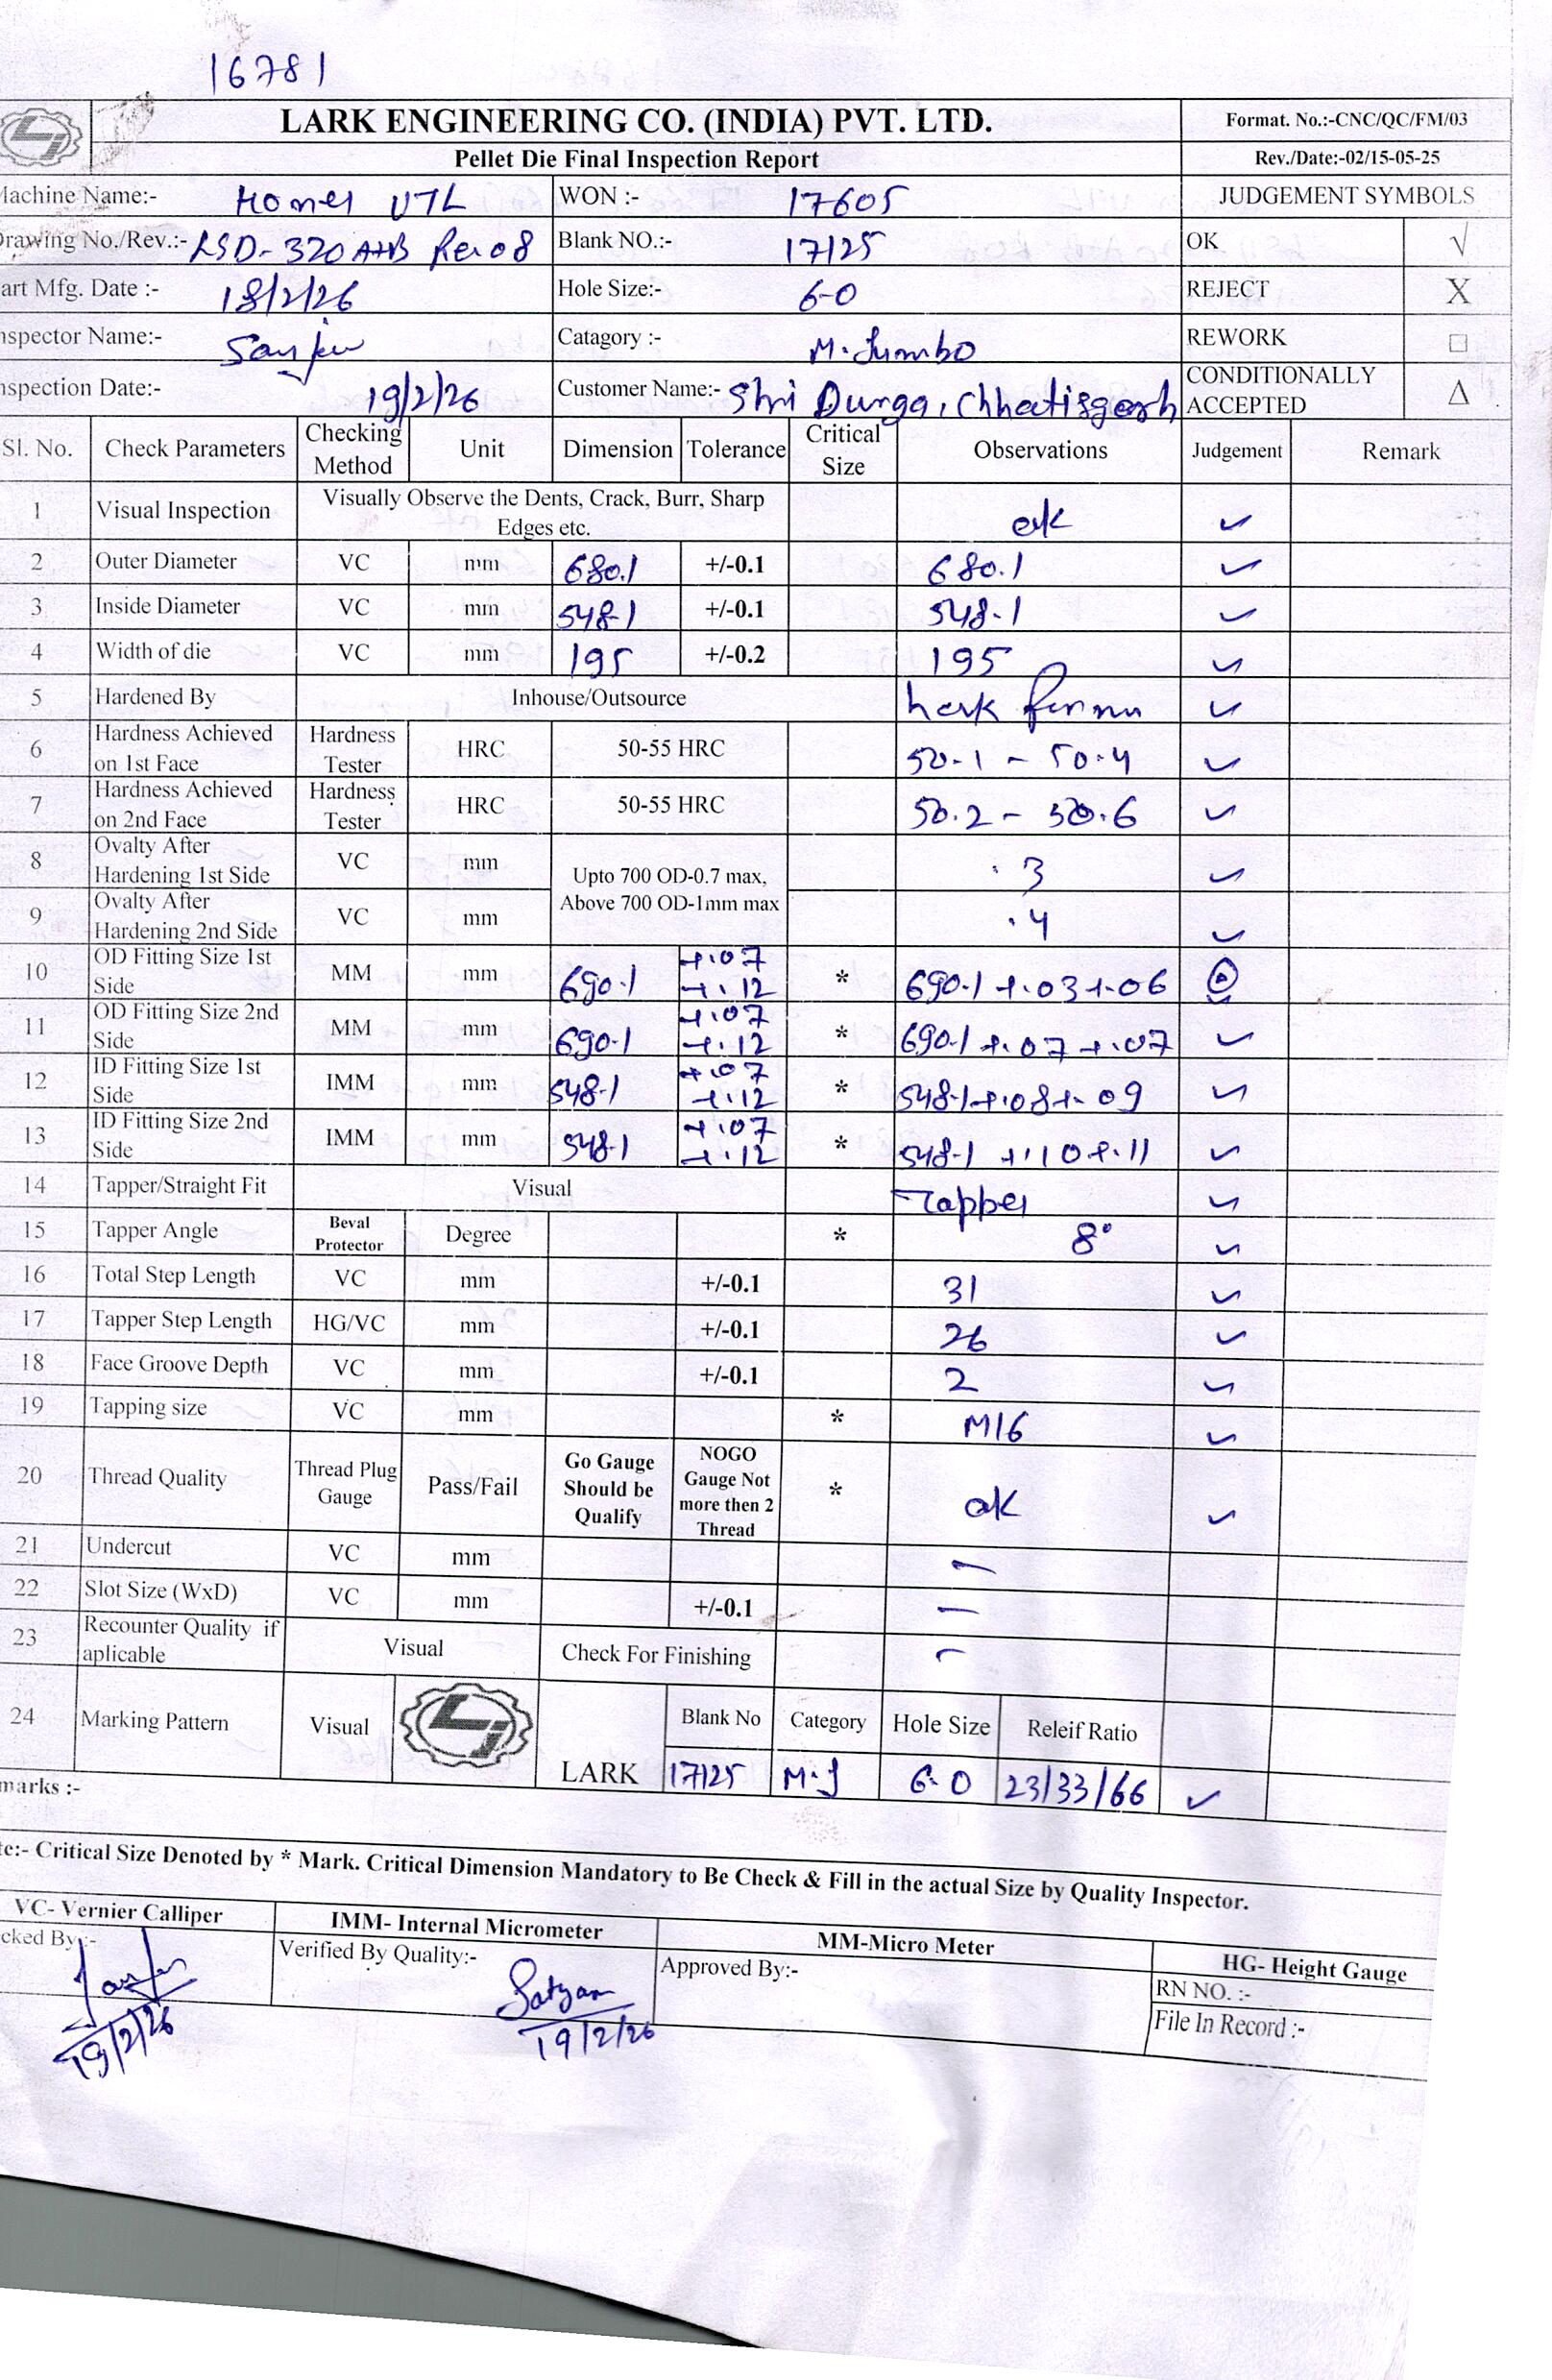 16781
LARK ENGINEERING CO. (INDIA) PVT. LTD. Format. No.:-CNC/QC/FM/03
Pellet Die Final Inspection Report Rev./Date:-02/15-05-25
achine Name:- UTL WON :- 17605 JUDGEMENT SYMBOLS
rawing No./Rev.:- LSD-320 A+B Rev 08 Blank NO.:- 17125 OK √
art Mfg. Date :- 18/2/26 Hole Size:- 6-0 REJECT X
nspector Name:- Catagory :- M.Jumbo REWORK □
nspection Date:- 19/2/26 Customer Name:- Shri Durga, Chhatisgarh CONDITIONALLY ACCEPTED Δ
Sl. No. Check Parameters Checking Method Unit Dimension Tolerance Critical Size Observations Judgement Remark
1 Visual Inspection Visually Observe the Dents, Crack, Burr, Sharp Edges etc. ok ✓
2 Outer Diameter VC mm 680.1 +/-0.1 680.1 ✓
3 Inside Diameter VC mm 548-1 +/-0.1 548-1 ✓
4 Width of die VC mm 195 +/-0.2 195 ✓
5 Hardened By Inhouse/Outsource ✓
6 Hardness Achieved on 1st Face Hardness Tester HRC 50-55 HRC 50-1 - 50.4 ✓
7 Hardness Achieved on 2nd Face Hardness Tester HRC 50-55 HRC 50.2 - 50.6 ✓
8 Ovalty After Hardening 1st Side VC mm Upto 700 OD-0.7 max, Above 700 OD-1mm max .3 ✓
9 Ovalty After Hardening 2nd Side VC mm .4 ✓
10 OD Fitting Size 1st Side MM mm 690-1 +.07 +.12 * 690-1 +.03+.06
11 OD Fitting Size 2nd Side MM mm 690-1 +.07 +.12 * 690-1 +.07 +.07 ✓
12 ID Fitting Size 1st Side IMM mm 548-1 +.07 +.12 * 548-1+.08+.09 ✓
13 ID Fitting Size 2nd Side IMM mm 548-1 +.07 +.12 * 548-1 +.10+.11 ✓
14 Tapper/Straight Fit Visual Tapper ✓
15 Tapper Angle Beval Protector Degree * 8° ✓
16 Total Step Length VC mm +/-0.1 31 ✓
17 Tapper Step Length HG/VC mm +/-0.1 26 ✓
18 Face Groove Depth VC mm +/-0.1 2 ✓
19 Tapping size VC mm * M16 ✓
20 Thread Quality Thread Plug Gauge Pass/Fail Go Gauge Should be Qualify NOGO Gauge Not more then 2 Thread * ok ✓
21 Undercut VC mm -
22 Slot Size (WxD) VC mm +/-0.1 -
23 Recounter Quality if aplicable Visual Check For Finishing -
24 Marking Pattern Visual LARK Blank No Category Hole Size Releif Ratio
17125 M.J 6-0 23/33/66 ✓
marks :-
te:- Critical Size Denoted by * Mark. Critical Dimension Mandatory to Be Check & Fill in the actual Size by Quality Inspector.
VC- Vernier Calliper IMM- Internal Micrometer MM-Micro Meter HG- Height Gauge
cked By:- Verified By Quality:- Satyam Approved By:- RN NO. :-
19/2/26 19/2/26 File In Record :-